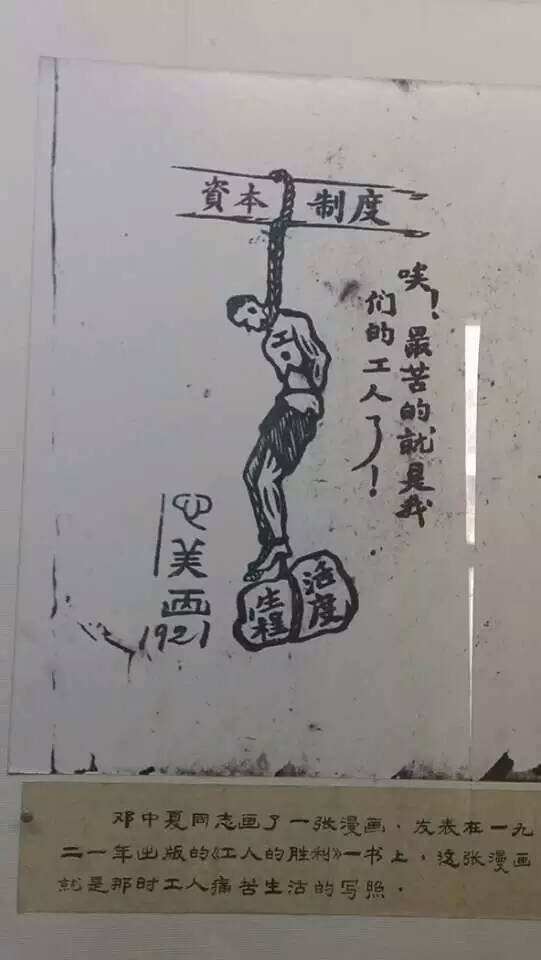 資本制度
唉！最苦的就是我
们的工人了！
工
生活
程度
美画
1921
邓中夏同志画了一张漫画，发表在一九
二一年出版的《工人的胜利》一书上，这张漫画
就是那时工人痛苦生活的写照。